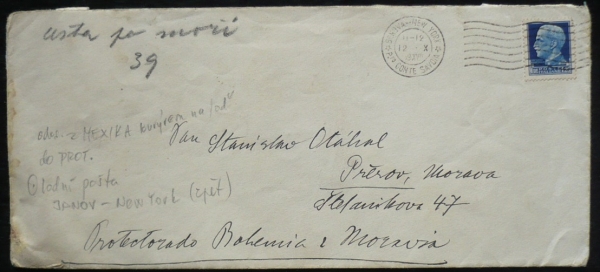 cesta po moři
39
12 X
CONTE
odes. z MEXIKA kurýrem na loď
do PROT.
lodní pošta
JANOV - NEW YORK (zpět)
Pan Stanislav Otáhal
Přerov, Morava
Štefanikova 47
Protectorado Bohemia e Moravia